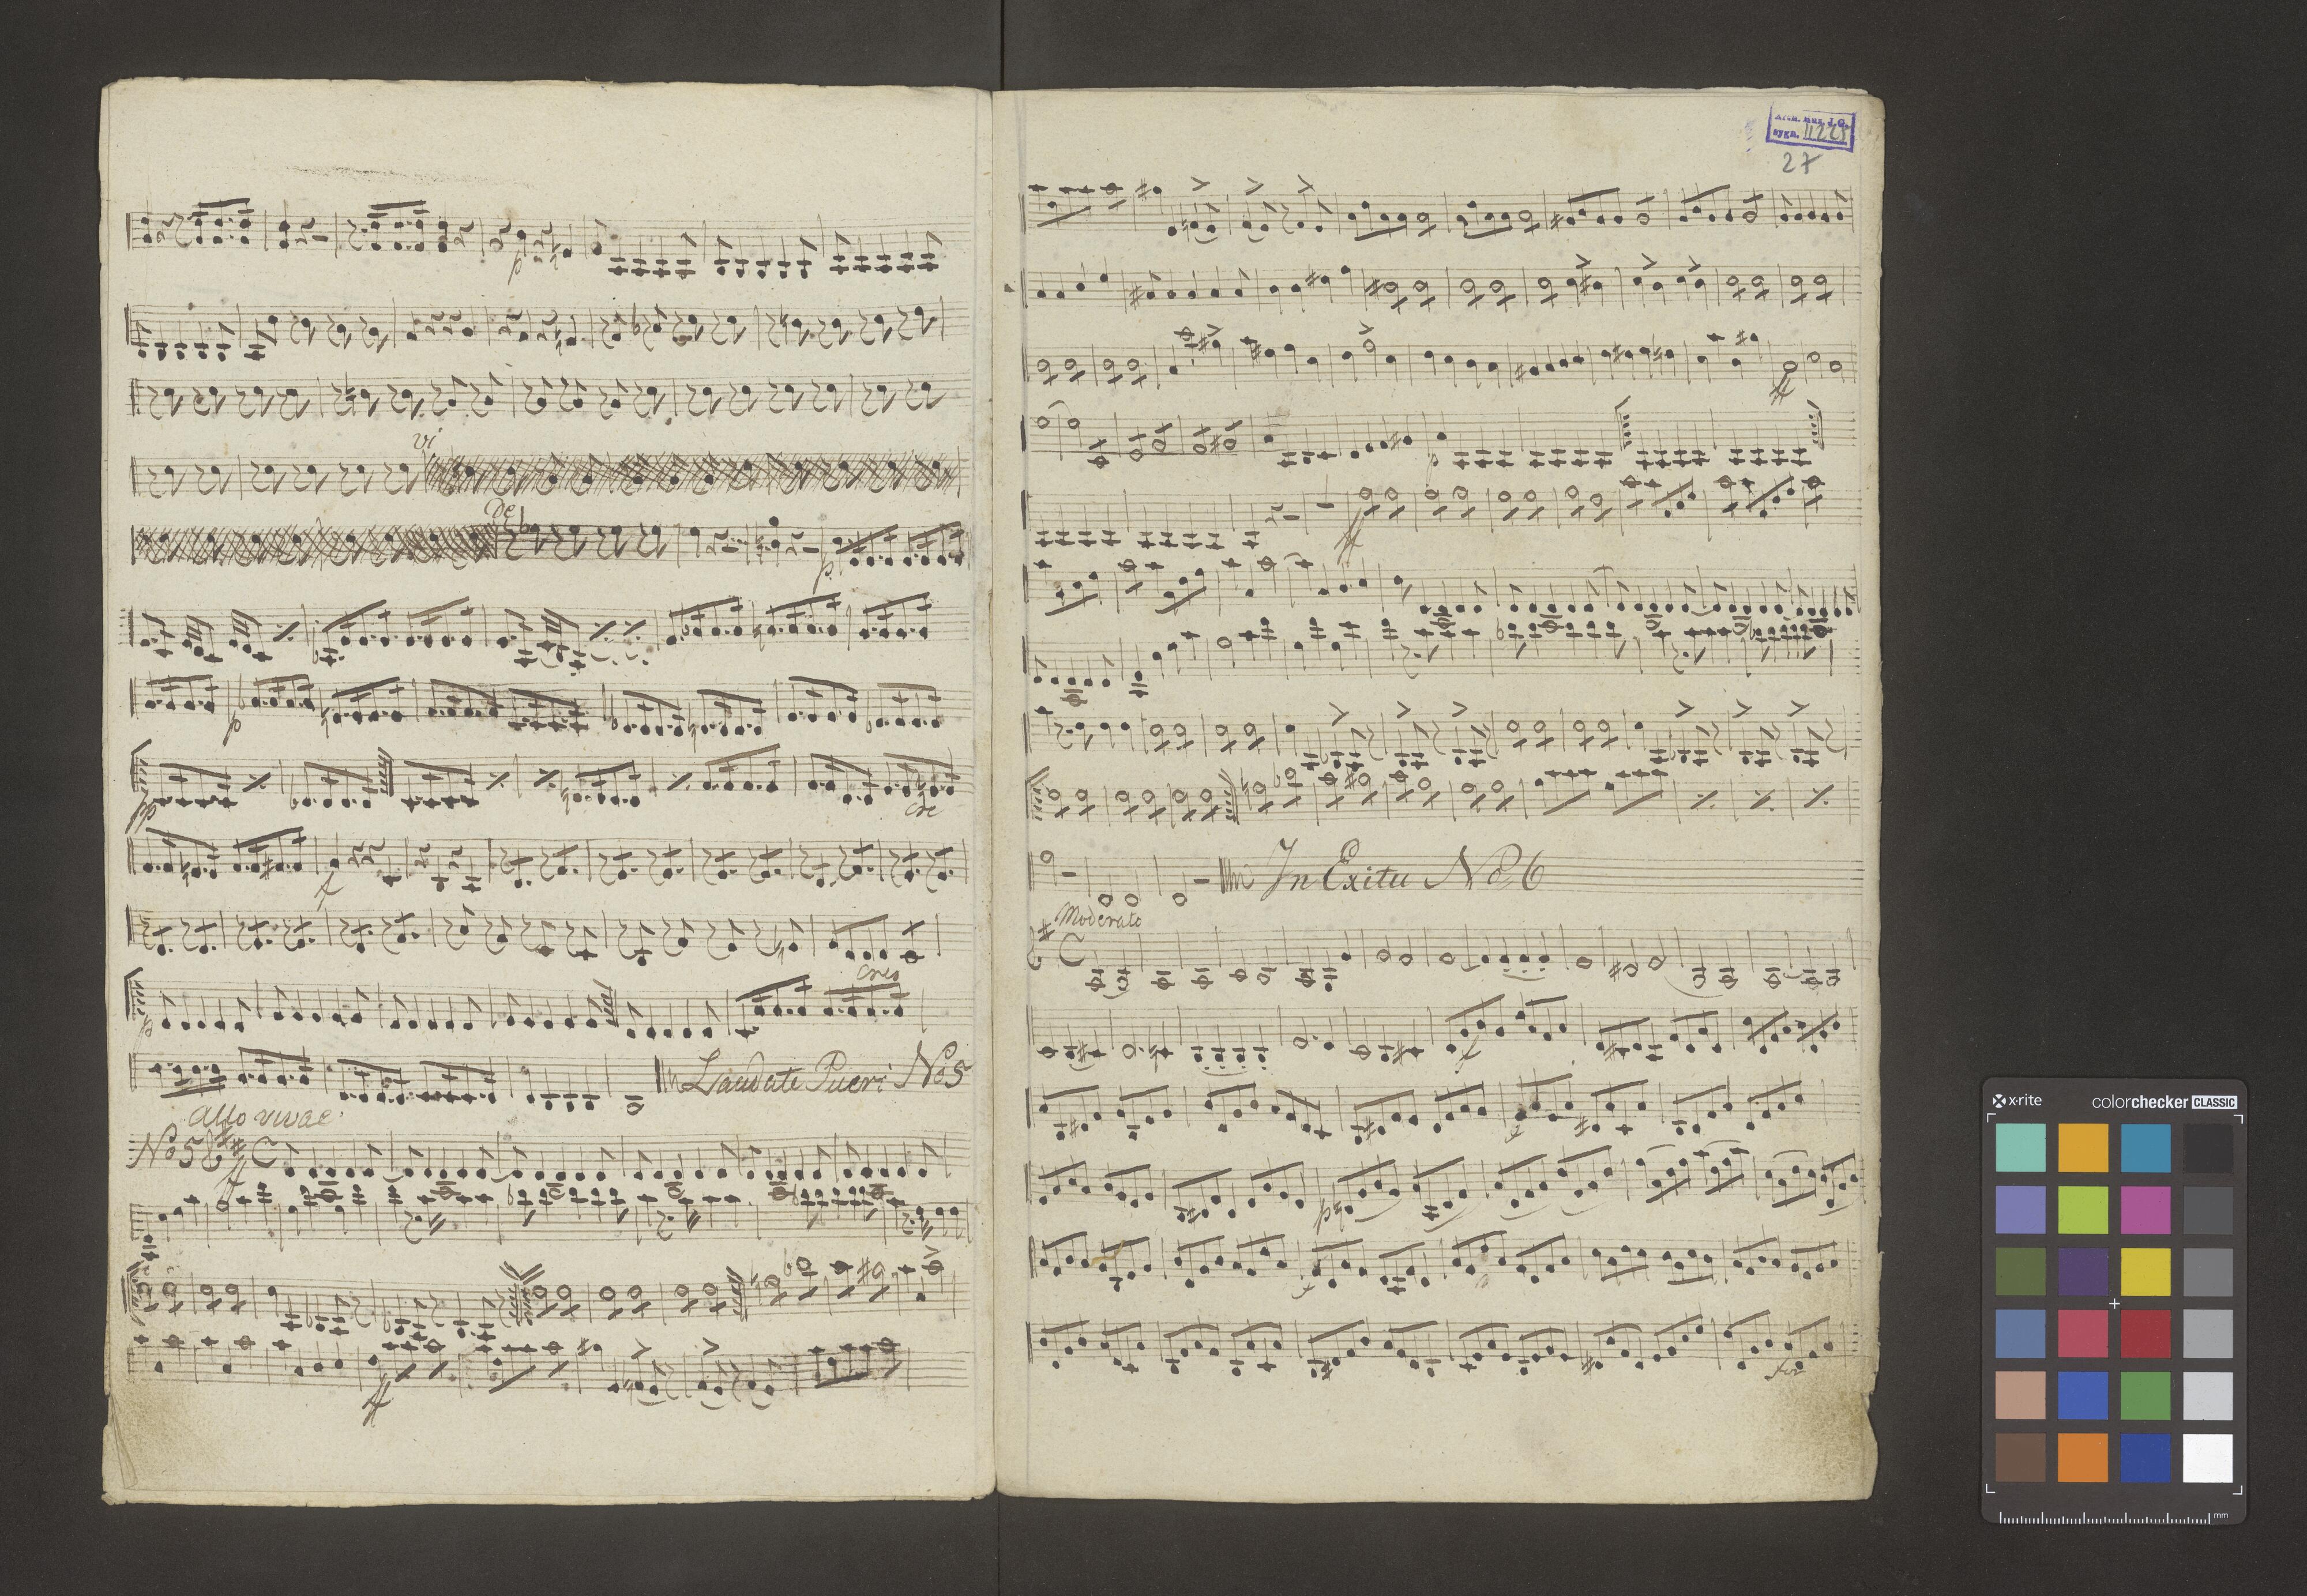 p
vi
de
p
p
pp cre
f
cres
p
Laudate Pueri No 5
Allo vivace
No 5 C
ff
ff
sygn. II 225
27
ff
p
ff
In Exitu No 6
Moderato
C
f
f
p
f
for
x-rite colorchecker CLASSIC
mm